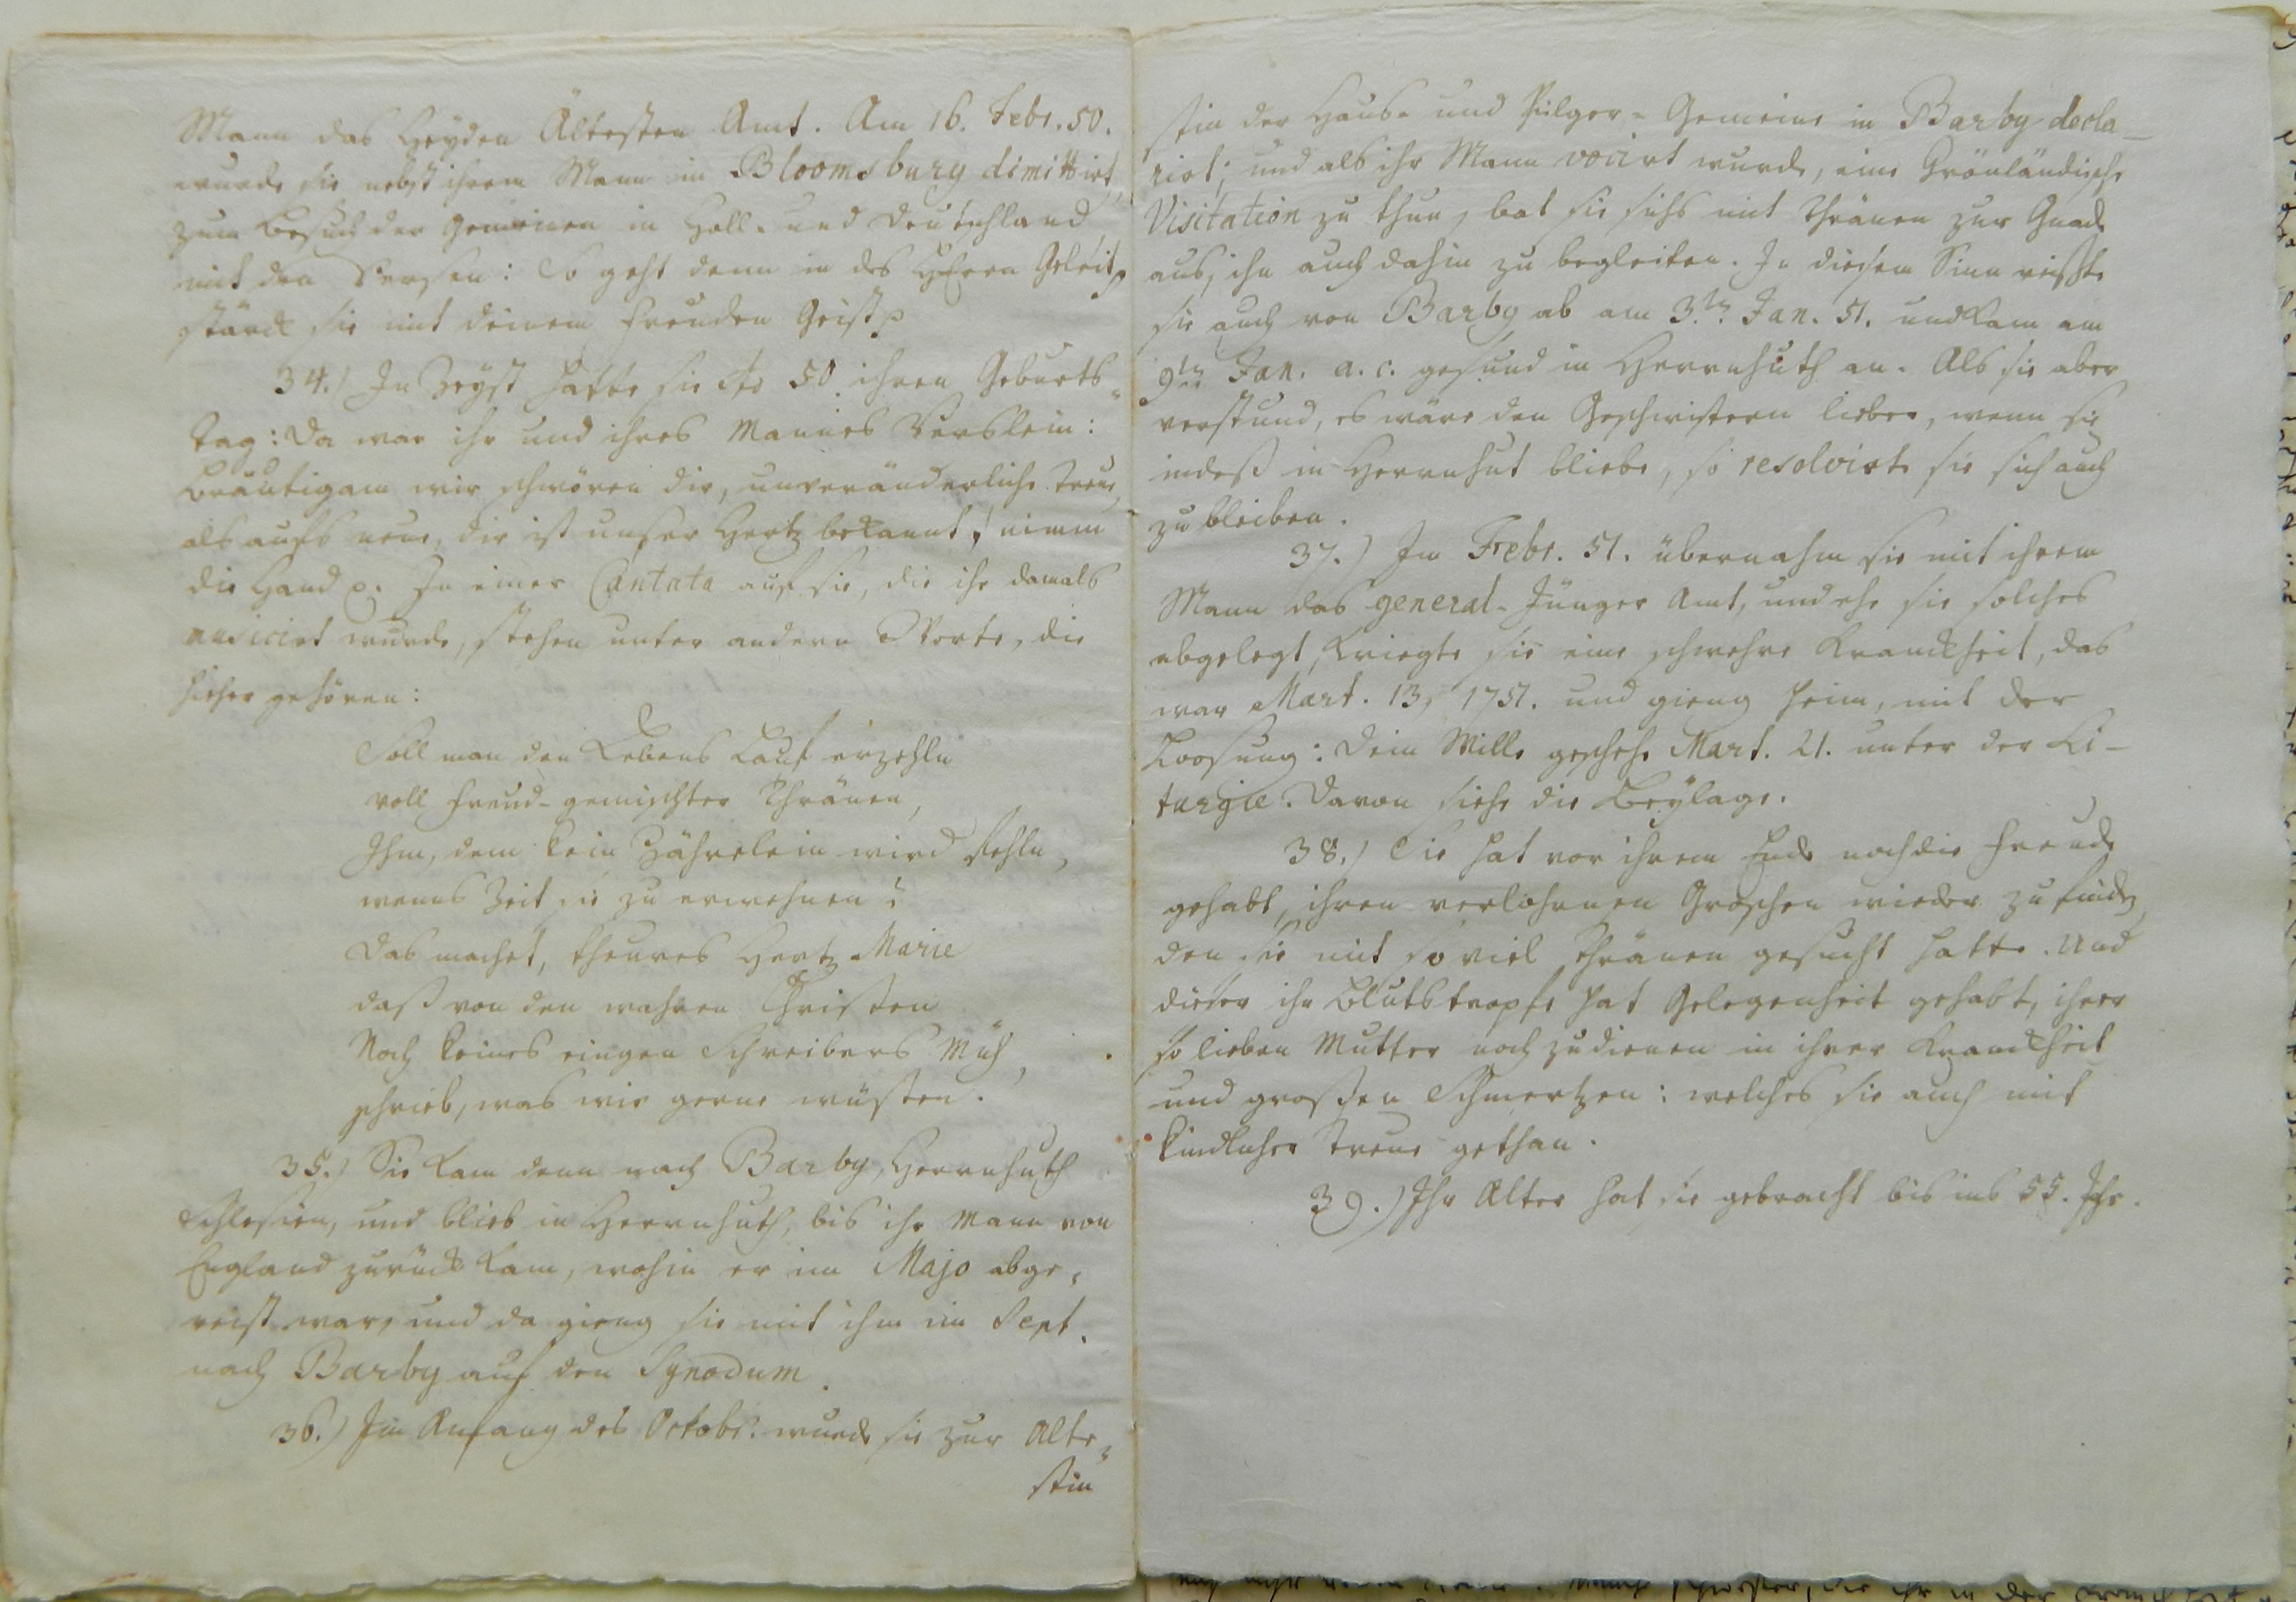 Mann das Heyden Ältesten Amt. Am 16. Febr. 50.
wurde sie nebst ihrem Mann in Bloomsburg dimittirt,
zum Besuch der Gemeinen in Holl- und Deutschland
mit den Versen: So geht denn in des HErrn Geleit p
stärck sie mit deinem Freuden Geist p
34.) In Zeyst hatte sie 50. ihren Geburts-
tag: Da war ihr und ihres Mannes Verslein:
Bräutigam wir schwören dir, unveränderliche Treue,
als aufs neue, dir ist unser Hertz bekannt, nimm
die Hand p. In einer Cantata auf sie, die ihr damals
musicirt wurde, stehen unter andern Worte, die
hieher gehören:
Soll man den Lebens Lauf erzehln
voll Freud-gemischter Thränen,
Ihm, dem kein Zährelein wird fehln,
wenns Zeit sie zu erwehnen?
Das machet, theures Hertz Marie
daß von den wahren Christen
Noch keines eingen Schreibers Müh,
schrieb, was wir gerne wüsten.
35.) Sie kam denn nach Barby, Herrnhuth
Schlesien, und blieb in Herrnhuth, bis ihr Mann von
England zurück kam, wohin er im Majo abge-
reist war, und da gieng sie mit ihm im Sept.
nach Barby auf den Synodum.
36.) Im Anfang des Octobr. wurde sie zur Älte-
stin
stin der Haus- und Pilger-Gemeine in Barby decla-
rirt; und als ihr Mann vocirt wurde, eine Grönländische
Visitation zu thun, bat sie sichs mit Thränen zur Gnade
aus, ihn auch dahin zu begleiten. In diesem Sinn reißte
sie auch von Barby ab am 3.ten Jan. 51. und kam am
9ten Jan. a. c. gesund in Herrnhuth an. Als sie aber
verstund, es wäre den Geschwistern lieber, wenn sie
indeß in Herrnhut bliebe, so resolvirte sie sich auch
zu bleiben.
37.) Im Febr. 51. übernahm sie mit ihrem
Mann das general-Jünger Amt, und ehe sie solches
abgelegt, kriegte sie eine schwehre Kranckheit, das
war Mart. 13, 1751. und gieng heim, mit der
Loosung: Dein Wille geschehe Mart. 21. unter der Li-
turgie. Davon siehe die Beylage.
38.) Sie hat vor ihrem Ende noch die Freude
gehabt, ihren verlohrnen Groschen wieder zu finden,
den sie mit so viel Thränen gesucht hatte. Und
dieser ihr Blutstropfe hat Gelegenheit gehabt, ihrer
so lieben Mutter noch zu dienen in ihrer Kranckheit
und großen Schmertzen: welches sie auch mit
kindlicher Treue gethan.
39.) Ihr Alter hat sie gebracht bis ins 55. Jahr.